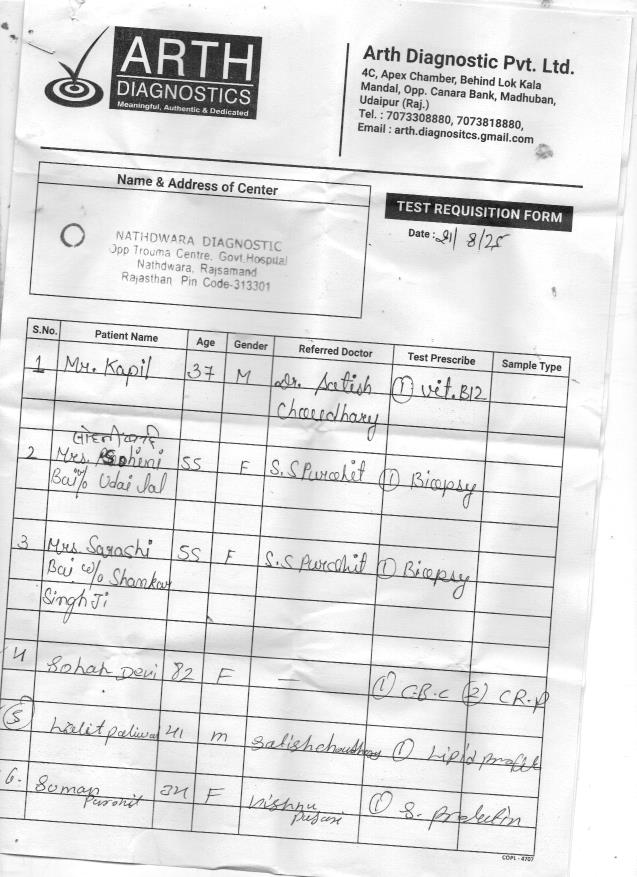 ARTH
DIAGNOSTICS
Meaningful, Authentic & Dedicated
Arth Diagnostic Pvt. Ltd.
4C, Apex Chamber, Behind Lok Kala
Mandal, Opp. Canara Bank, Madhuban,
Udaipur (Raj.)
Tel. : 7073308880, 7073818880,
Email : arth.diagnositcs.gmail.com
Name & Address of Center
NATHDWARA DIAGNOSTIC
Opp Trouma Centre, Govt.Hospital
Nathdwara, Rajsamand
Rajasthan Pin Code-313301
TEST REQUISITION FORM
Date : 21/8/25
S.No. Patient Name Age Gender Referred Doctor Test Prescribe Sample Type
1 Mr. Kapil 37 M Dr. Satish ① Vit. B12
Choudhary
2 Mrs. 55 F S.S Purohit ① Bicopsy
Bai w/o Udai lal
3 Mrs. Sarashi 55 F S.S Purohit ① Bicopsy
Bai w/o Shankar
Singh Ji
4 Sohan Devi 82 F — ① C.B.C ② CR.P
5 Lalit paliwal 41 m Satish choudhary ① Lipid profile
6. Suman F Vishnu ① S.
Purohit
COPL - 4707